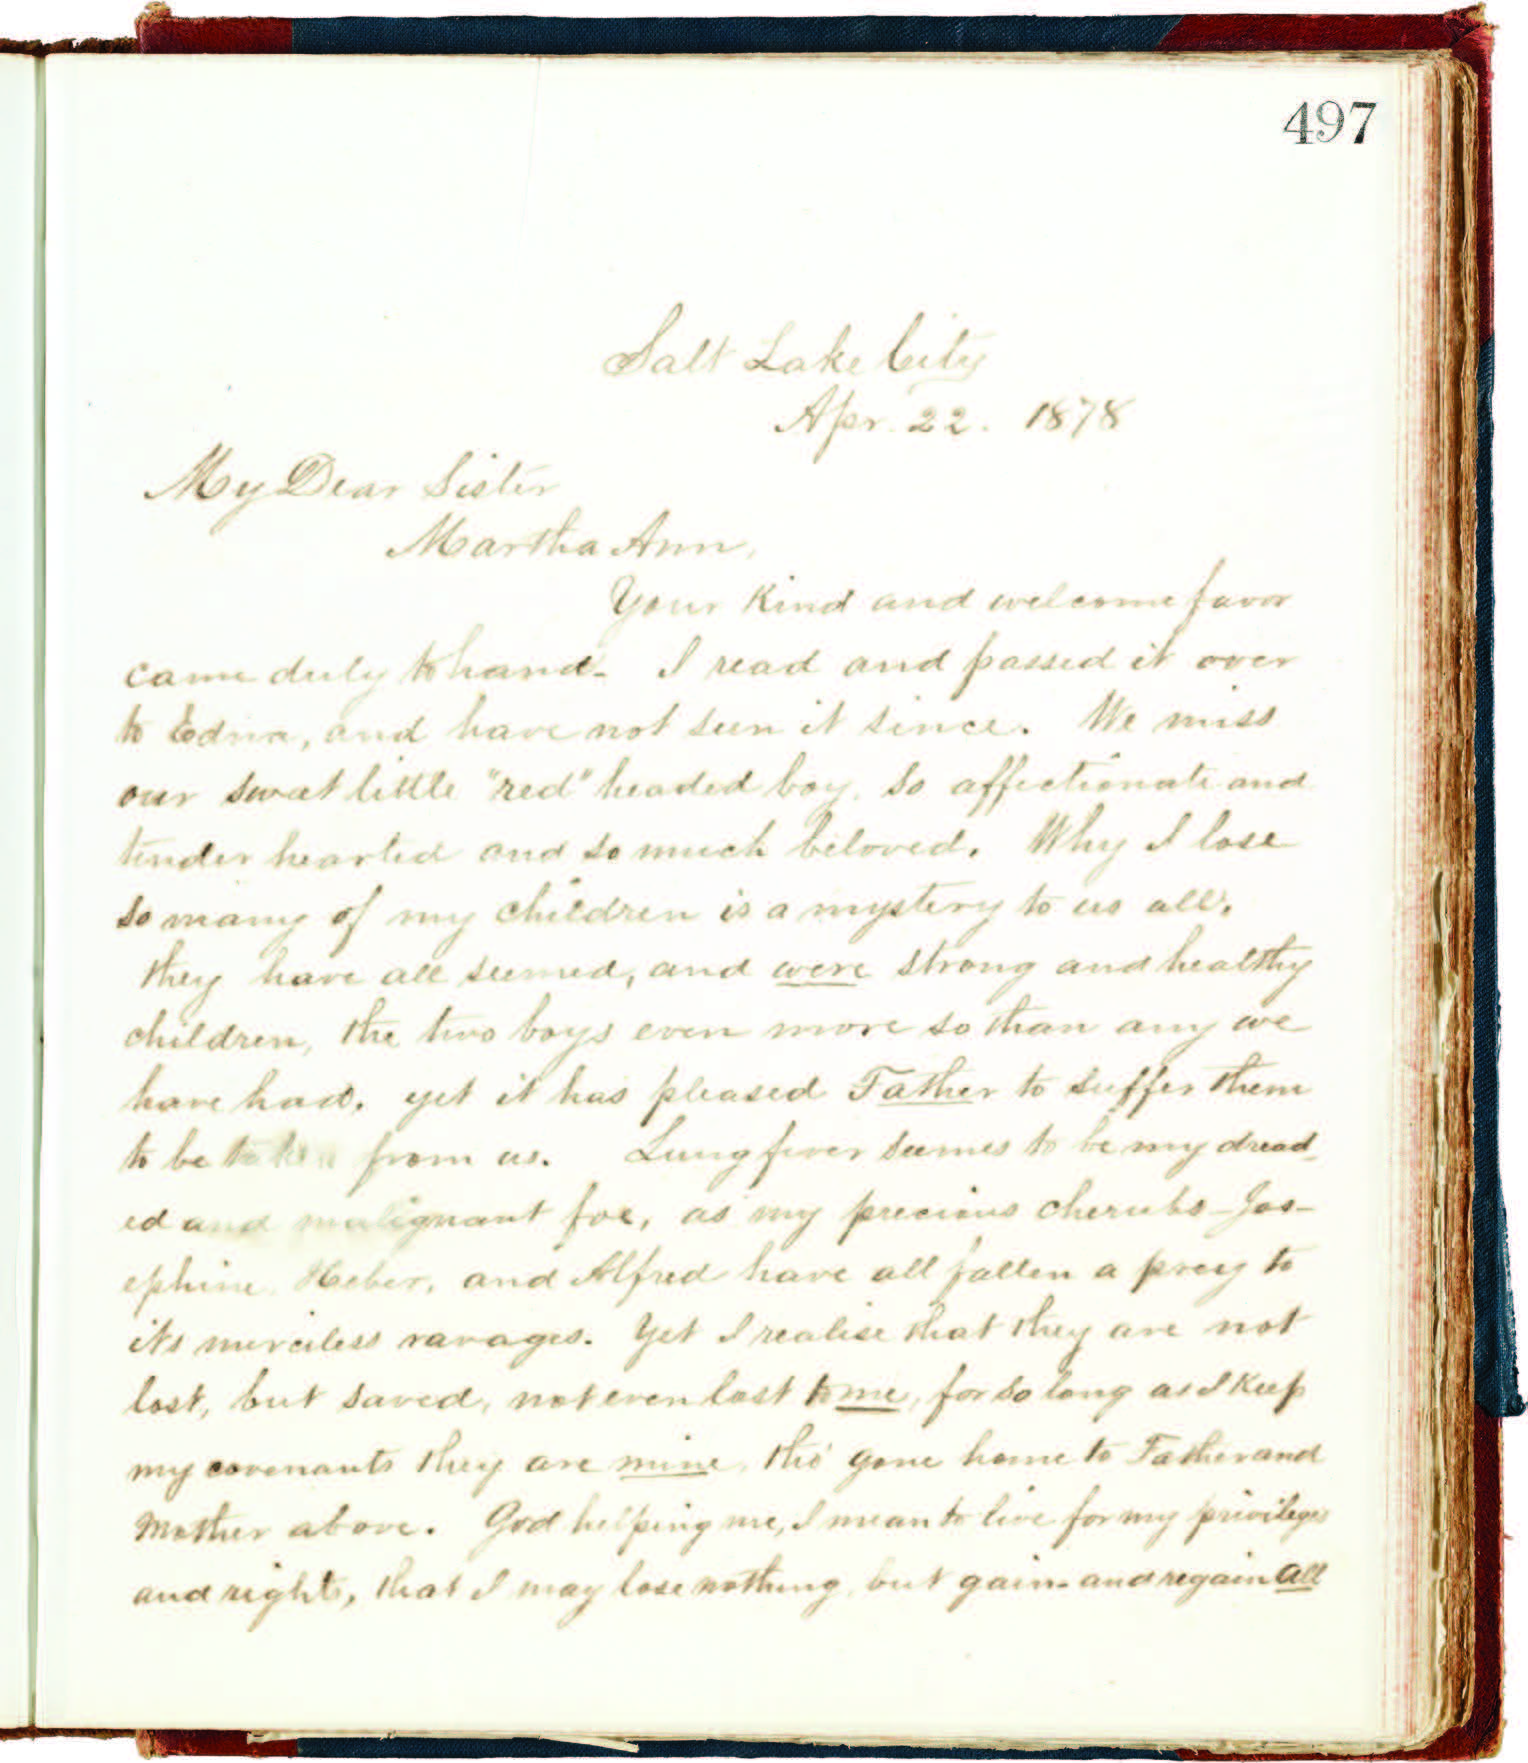 497
Salt Lake City
Apr. 22. 1878
My Dear Sister
Martha Ann,
Your kind and welcome favor
came duly to hand- I read and passed it over
to Edna, and have not seen it since. We miss
our sweet little "red" headed boy, so affectionate and
tender hearted and so much beloved. Why I lose
so many of my children is a mystery to us all.
they have all seemed, and were strong and healthy
children, the two boys even more so than any we
have had. yet it has pleased Father to suffer them
to be taken from us. Lung fever seemes to be my dread-
ed and malignant foe, as my precious cherubs-Jos-
ephine, Heber, and Alfred have all fallen a prey to
its merciless ravages. Yet I realise that they are not
lost, but saved, not even lost to me, for so long as I keep
my covenants they are mine, tho' gone home to Father and
Mother above. God helping me, I mean to live for my privileges
and rights, that I may lose nothing, but gain- and regain all